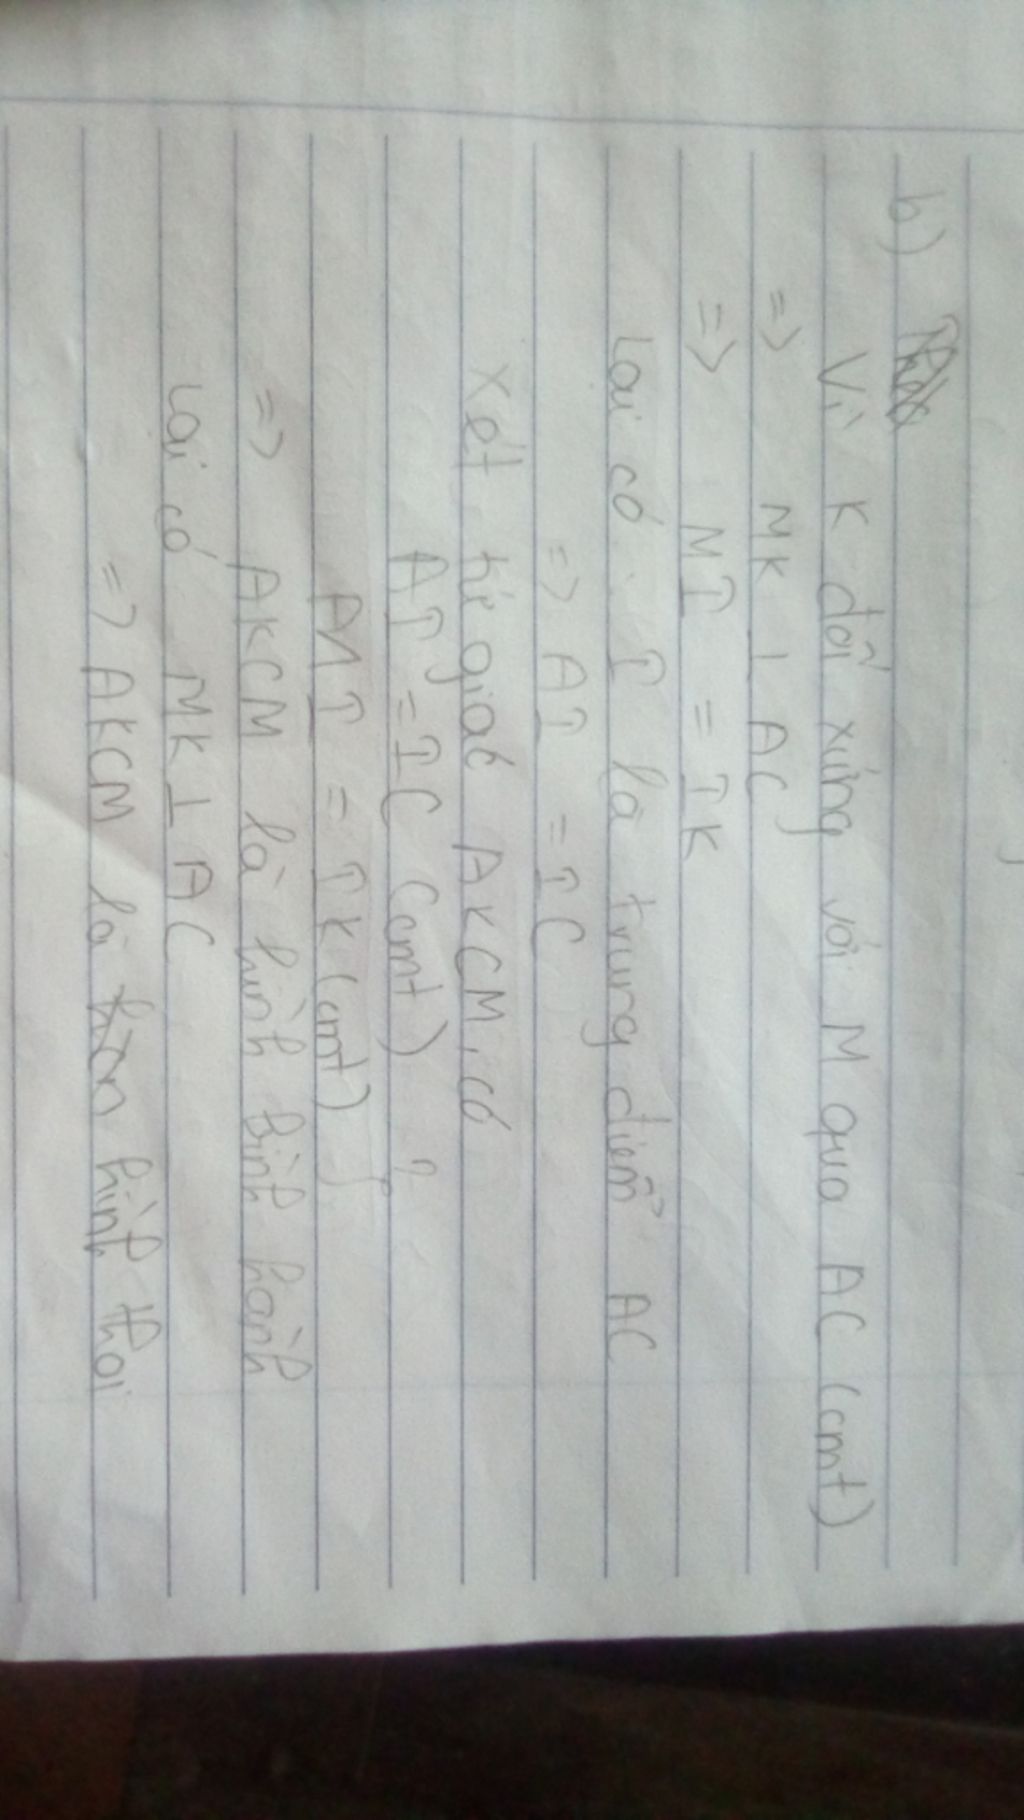 b)
Vì K đối xứng với M qua AC (cmt)
=> MK ⊥ AC
=> MI = IK
Lại có: I là trung điểm AC
=> AI = IC
Xét tứ giác AKCM, có
AI = IC (cmt)
MI = IK (cmt)
=> AKCM là hình bình hành
Lại có MK ⊥ AC
=> AKCM là hình thoi